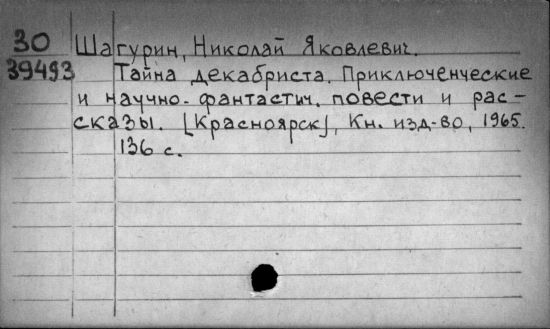 30 Шагурин, Николай Яковлевич.
39493 Тайна декабриста. Приключенческие
и научно-фантастич. повести и рас-
сказы. [Красноярск], Кн. изд-во, 1965.
136 с.